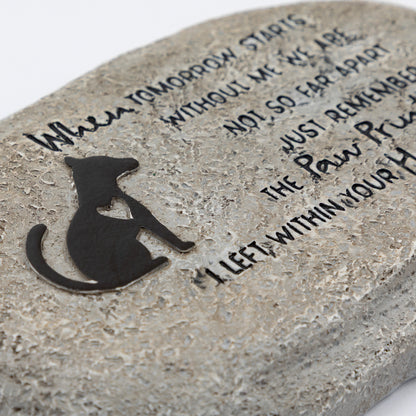 When TOMORROW STARTS
WITHOUT ME WE ARE
NOT SO FAR APART
JUST REMEMBER
THE Paw Prin
I LEFT WITHIN YOUR H